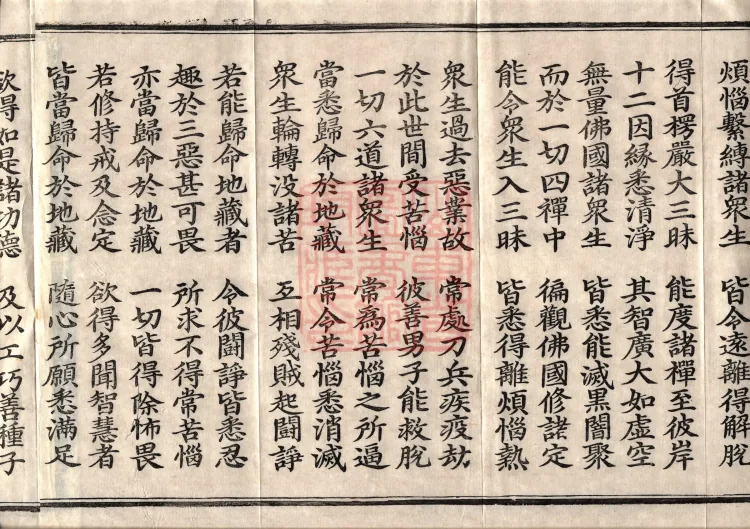 煩惱繫縛諸衆生　皆令遠離得解脫
得首楞嚴大三昧　能度諸禪至彼岸
十二因緣悉清淨　其智廣大如虛空
無量佛國諸衆生　皆悉能滅黑闇聚
而於一切四禪中　徧觀佛國修諸定
能令衆生入三昧　皆悉得離煩惱熱
衆生過去惡業故　常處刀兵疾疫劫
於此世間受苦惱　彼善男子能救脫
一切六道諸衆生　常爲苦惱之所逼
當悉歸命於地藏　常令苦惱悉消滅
衆生輪轉没諸苦　互相殘賊起鬪諍
若能歸命地藏者　令彼鬪諍皆悉忍
趣於三惡甚可畏　所求不得常苦惱
亦當歸命於地藏　一切皆得除怖畏
若修持戒及念定　欲得多聞智慧者
皆當歸命於地藏　隨心所願悉滿足
欲得如是諸功德　及以工巧善種子